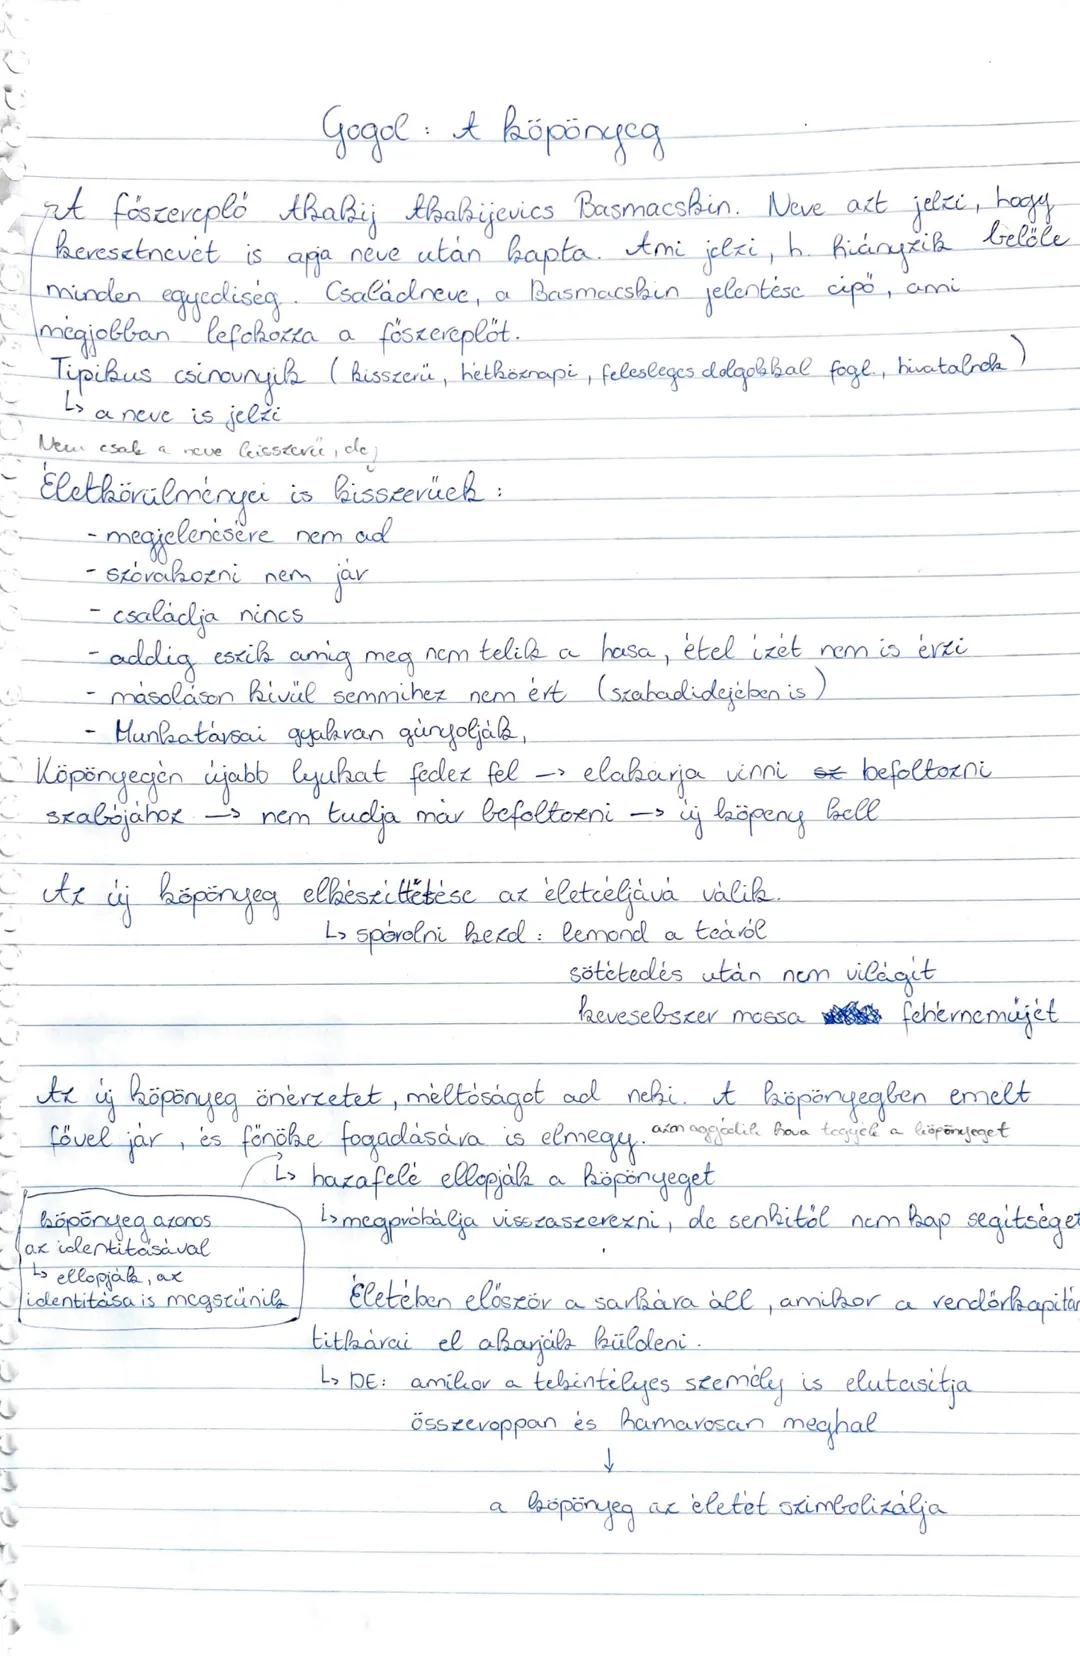 Gogol: A köpönyeg
A főszereplő Akakij Akakijevics Basmacskin. Neve azt jelzi, hogy
keresztnevét is apja neve után kapta. Ami jelzi, h. hiányzik belőle
minden egyediség. Családneve, a Basmacskin jelentése cipő, ami
mégjobban lefokozza a főszereplőt.
Tipikus csinovnyik (kisszerű, hétköznapi, felesleges dolgokkal fogl., hivatalnok)
↳ a neve is jelzi
Nem csak a neve kisszerű, de
Életkörülményei is kisszerűek:
- megjelenésére nem ad
- szórakozni nem jár
- családja nincs
- addig eszik amig meg nem telik a hasa, étel ízét nem is érzi
- másoláson kívül semmihez nem ért (szabadidejében is)
- Munkatársai gyakran gúnyolják,
Köpönyegén újabb lyukat fedez fel → elakarja vinni befoltozni
szabójához → nem tudja már befoltozni → új köpeny kell
Az új köpönyeg elkészíttetése az életcéljává válik.
↳ spórolni kezd: lemond a teáról
sötétedés után nem világít
kevesebszer mossa fehérneműjét
Az új köpönyeg önérzetet, méltóságot ad neki. A köpönyegben emelt
fővel jár, és főnöke fogadására is elmegy. aggódik hova tegyék a köpönyeget
↳ hazafelé ellopják a köpönyeget
↳ megpróbálja visszaszerezni, de senkitől nem kap segítséget
köpönyeg azonos
az identitásával
↳ ellopják, az
identitása is megszűnik
Életében először a sarkára áll, amikor a rendőrkapitán
titkárai el akarják küldeni.
↳ DE: amikor a tekintélyes személy is elutasítja
összeroppan és hamarosan meghal
↓
a köpönyeg az életét szimbolizálja